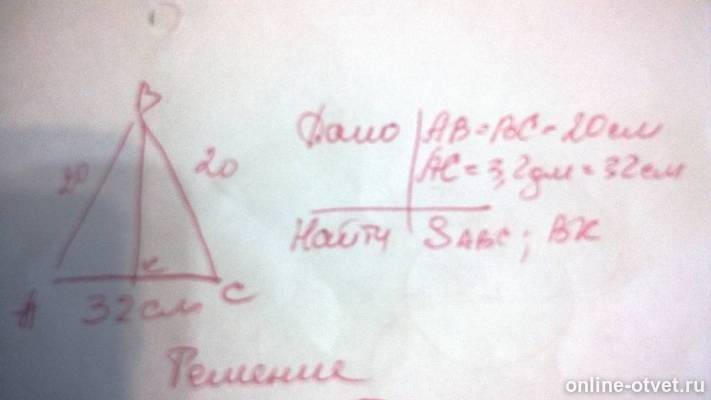 B
Дано AB=BC=20см
20 20
AC=3,2дм=32см
Найти SABC; BK
K
A 32см C
Решение
online-otvet.ru